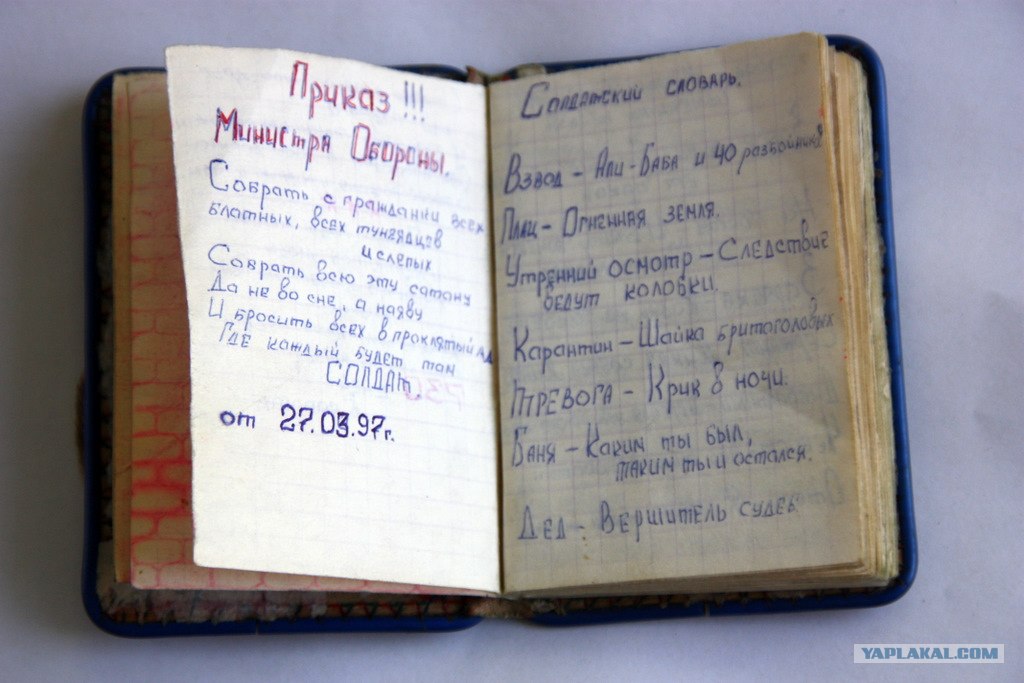 Приказ !!!
Министра Обороны.
Собрать с гражданки всех
блатных, всех тунеядцев
и слепых
Собрать всю эту сатану
Да не во сне, а наяву
И бросить всех в проклятый ад
Где каждый будет там
СОЛДАТ
от 27.03.97г.
Солдатский словарь.
Взвод – Али-Баба и 40 разбойников
Плац – Огненная земля.
Утренний осмотр – Следствие
ведут колобки.
Карантин – Шайка бритоголовых
ТРЕВОГА – Крик в ночи.
Баня – Каким ты был,
таким ты и остался.
Дед – Вершитель судеб
YAPLAKAL.COM